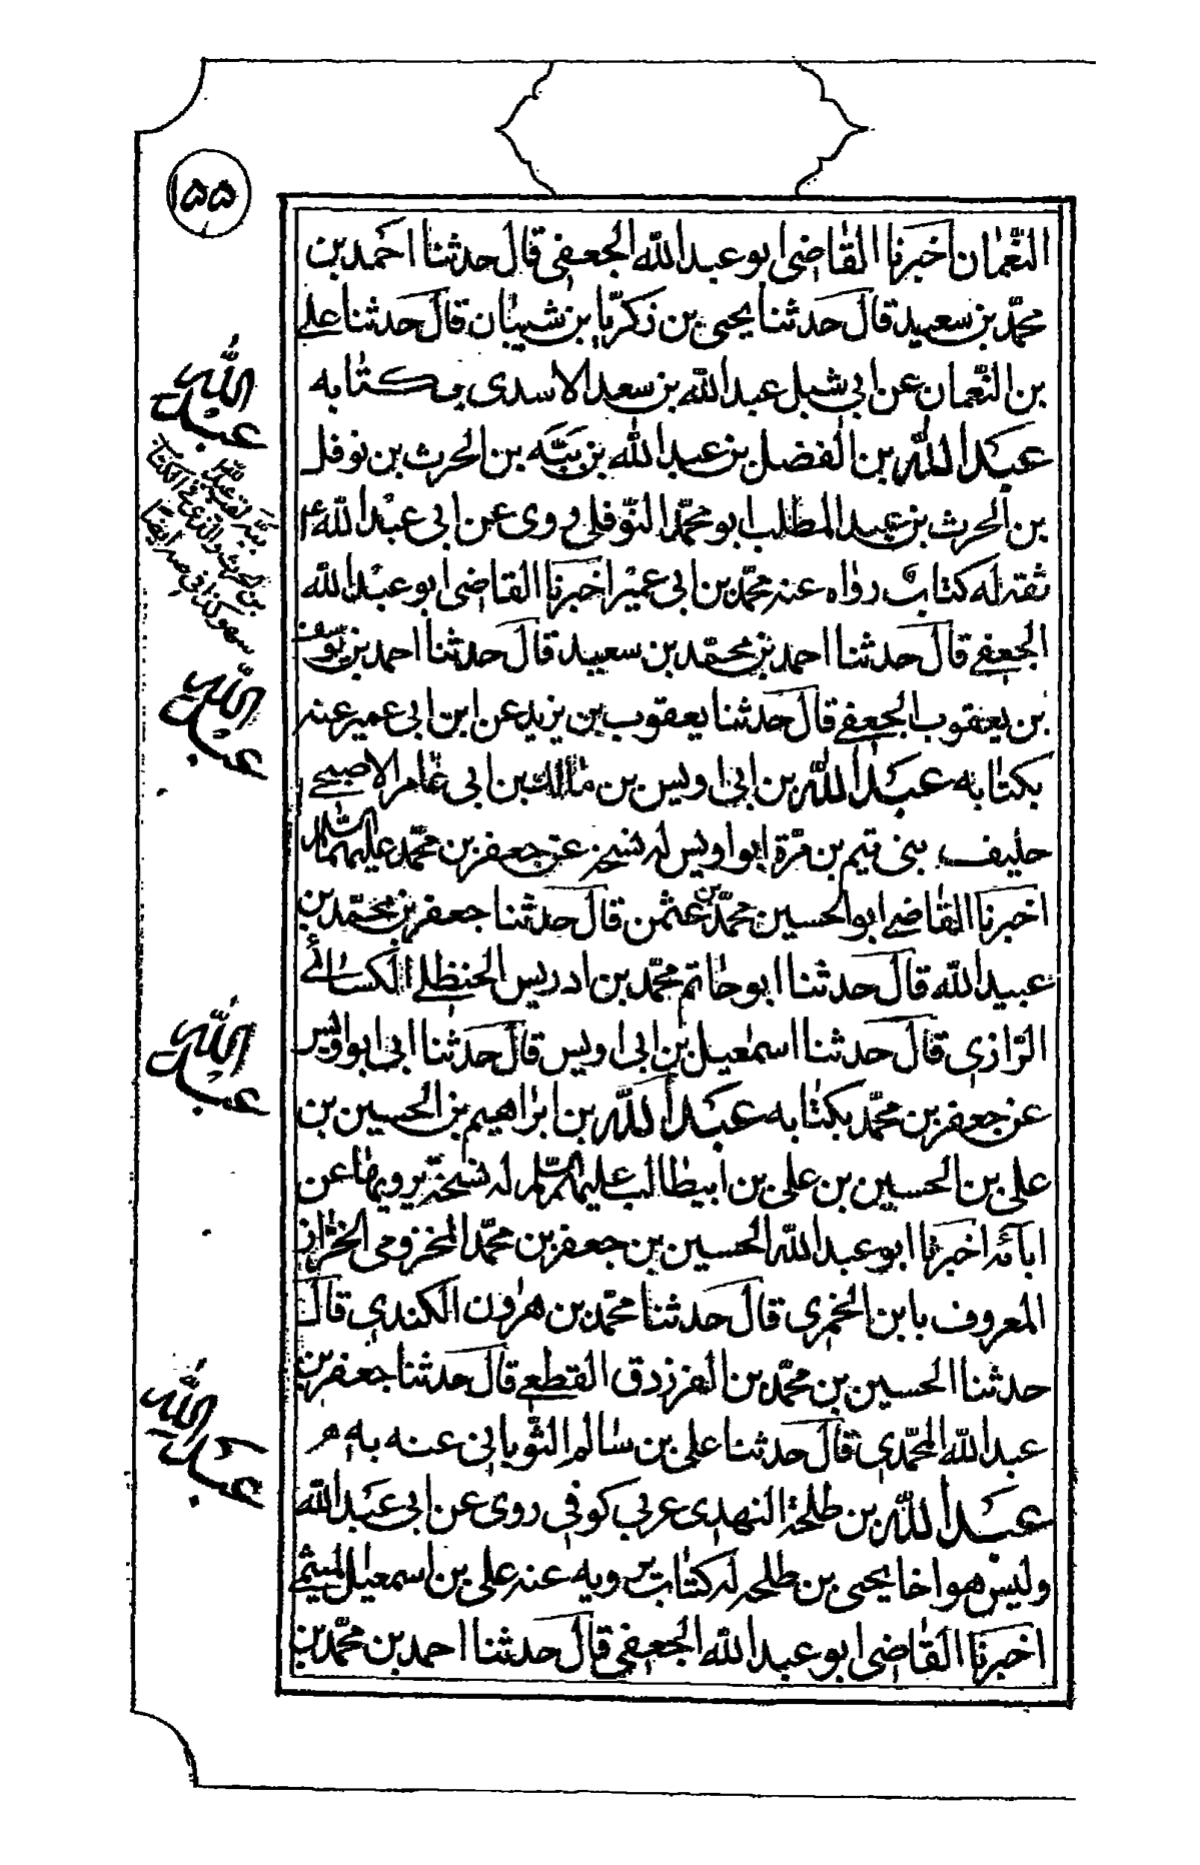 ١٥٥
النّعمان اخبرنا القاضى ابو عبد الله الجعفى قال حدثنا احمد بن
محمّد بن سعيد قال حدثنا يحيى بن زكريّا بن شيبان قال حدثنا على
بن النّعمان عن ابى شبل عبد الله بن سعيد الاسدى بكتابه
عبد الله بن الفضل بن عبد الله بن ببّه بن الحرث بن نوفل
بن الحرث بن عبد المطلب ابو محمّد النّوفلى روى عن ابى عبد الله ع
ثقة له كتاب رواه عنه محمّد بن ابى عمير اخبرنا القاضى ابو عبد الله
الجعفى قال حدثنا احمد بن محمّد بن سعيد قال حدثنا احمد بن يوسف
بن يعقوب الجعفى قال حدثنا يعقوب بن يزيد عن ابن ابى عمير عنه
بكتابه عبد الله بن ابى اويس بن مالك بن ابى عامر الاصبحى
حليف بنى تيم بن مرّة ابو اويس له نسخة عن جعفر بن محمّد عليهما السّلام
اخبرنا القاضى ابو الحسين محمّد بن عثمن قال حدثنا جعفر بن محمّد بن
عبيد الله قال حدثنا ابو حاتم محمّد بن ادريس الحنظلى الكسائى
الرّازى قال حدثنا اسمعيل بن ابى اويس قال حدثنا ابى ابو اويس
عن جعفر بن محمّد بكتابه عبد الله بن ابراهيم بن الحسين بن
على بن الحسين بن على بن ابيطالب عليهم السّلام له نسخة يرويها عن
ابائه اخبرنا ابو عبد الله الحسين بن جعفر بن محمّد المخزومى الخزّاز
المعروف بابن الخمرى قال حدثنا محمّد بن هرون الكندى قال
حدثنا الحسين بن محمّد بن الفرزدق القطعى قال حدثنا جعفر بن
عبد الله المحمّدى قال حدثنا على بن سالم الثّوبانى عنه به
عبد الله بن طلحة النهدى عربى كوفى روى عن ابى عبد الله
وليس هو اخا يحيى بن طلحه له كتاب يرويه عنه على بن اسمعيل الميثمى
اخبرنا القاضى ابو عبد الله الجعفى قال حدثنا احمد بن محمّد بن
عبد الله
ببّه لقب عبد الله
بن الحرث والذى فى الكتاب
سهو كذا فى ايضا
عبد الله
عبد الله
عبد الله